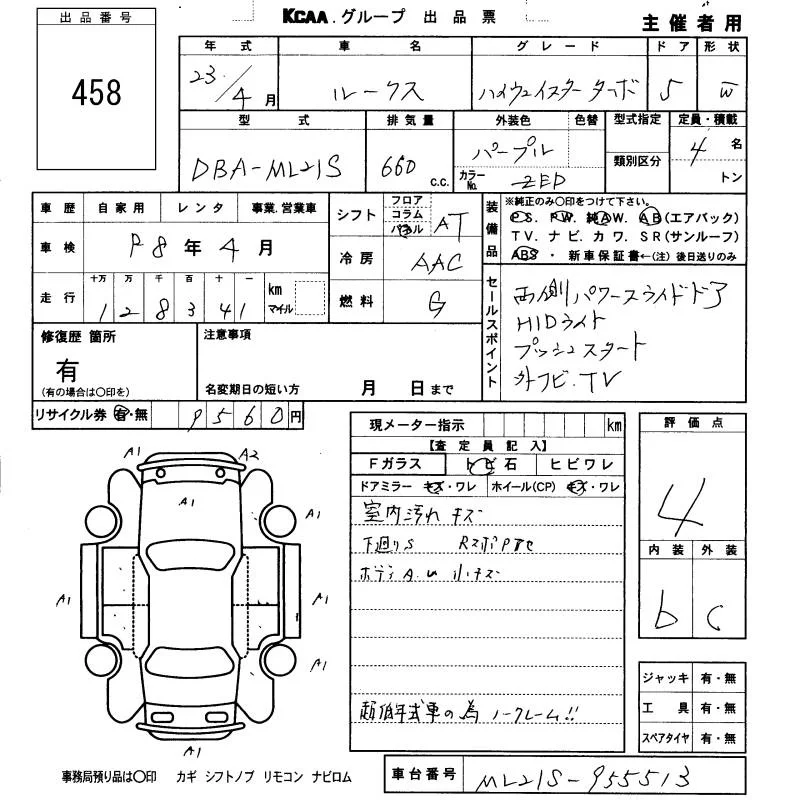 出品番号
458
KCAA.グループ 出品票
主催者用
年式 車名 グレード ドア 形状
23/4月 ルークス ハイウェイスター ターボ 5 W
型式 排気量 外装色 色替 型式指定 定員・積載
DBA-ML21S 660 c.c. パープル 類別区分 4名
カラーNo. ZED トン
車歴 自家用 レンタ 事業.営業車
車検 R8年4月
走行 十万 万 千 百 十 一
1 2 8 3 4 1 km マイル
シフト フロア コラム パネル AT
冷房 AAC
燃料 G
装備品
※純正のみ○印をつけて下さい。
PS. PW. 純AW. AB(エアバック)
TV. ナビ. カワ. SR(サンルーフ)
ABS・新車保証書←(注)後日送りのみ
セールスポイント
両側パワースライドドア
HIDライト
プッシュスタート
外ナビ.TV
修復歴 箇所
有
(有の場合は○印を)
注意事項
名変期日の短い方 月 日まで
リサイクル券 有・無 9560円
現メーター指示 km
【査定員記入】
Fガラス トビ石 ヒビワレ
ドアミラー キズ・ワレ ホイール(CP) キズ・ワレ
室内汚れ キズ
下廻りS
ボディA.U 小キズ
超低年式車の為 ノークレーム!!
評価点
4
内装 外装
b c
ジャッキ 有・無
工具 有・無
スペアタイヤ 有・無
A1 A2
A1
A1 A1
A1 A1
A1 A1
A1
事務局預り品は○印 カギ シフトノブ リモコン ナビロム
車台番号 ML21S-955513